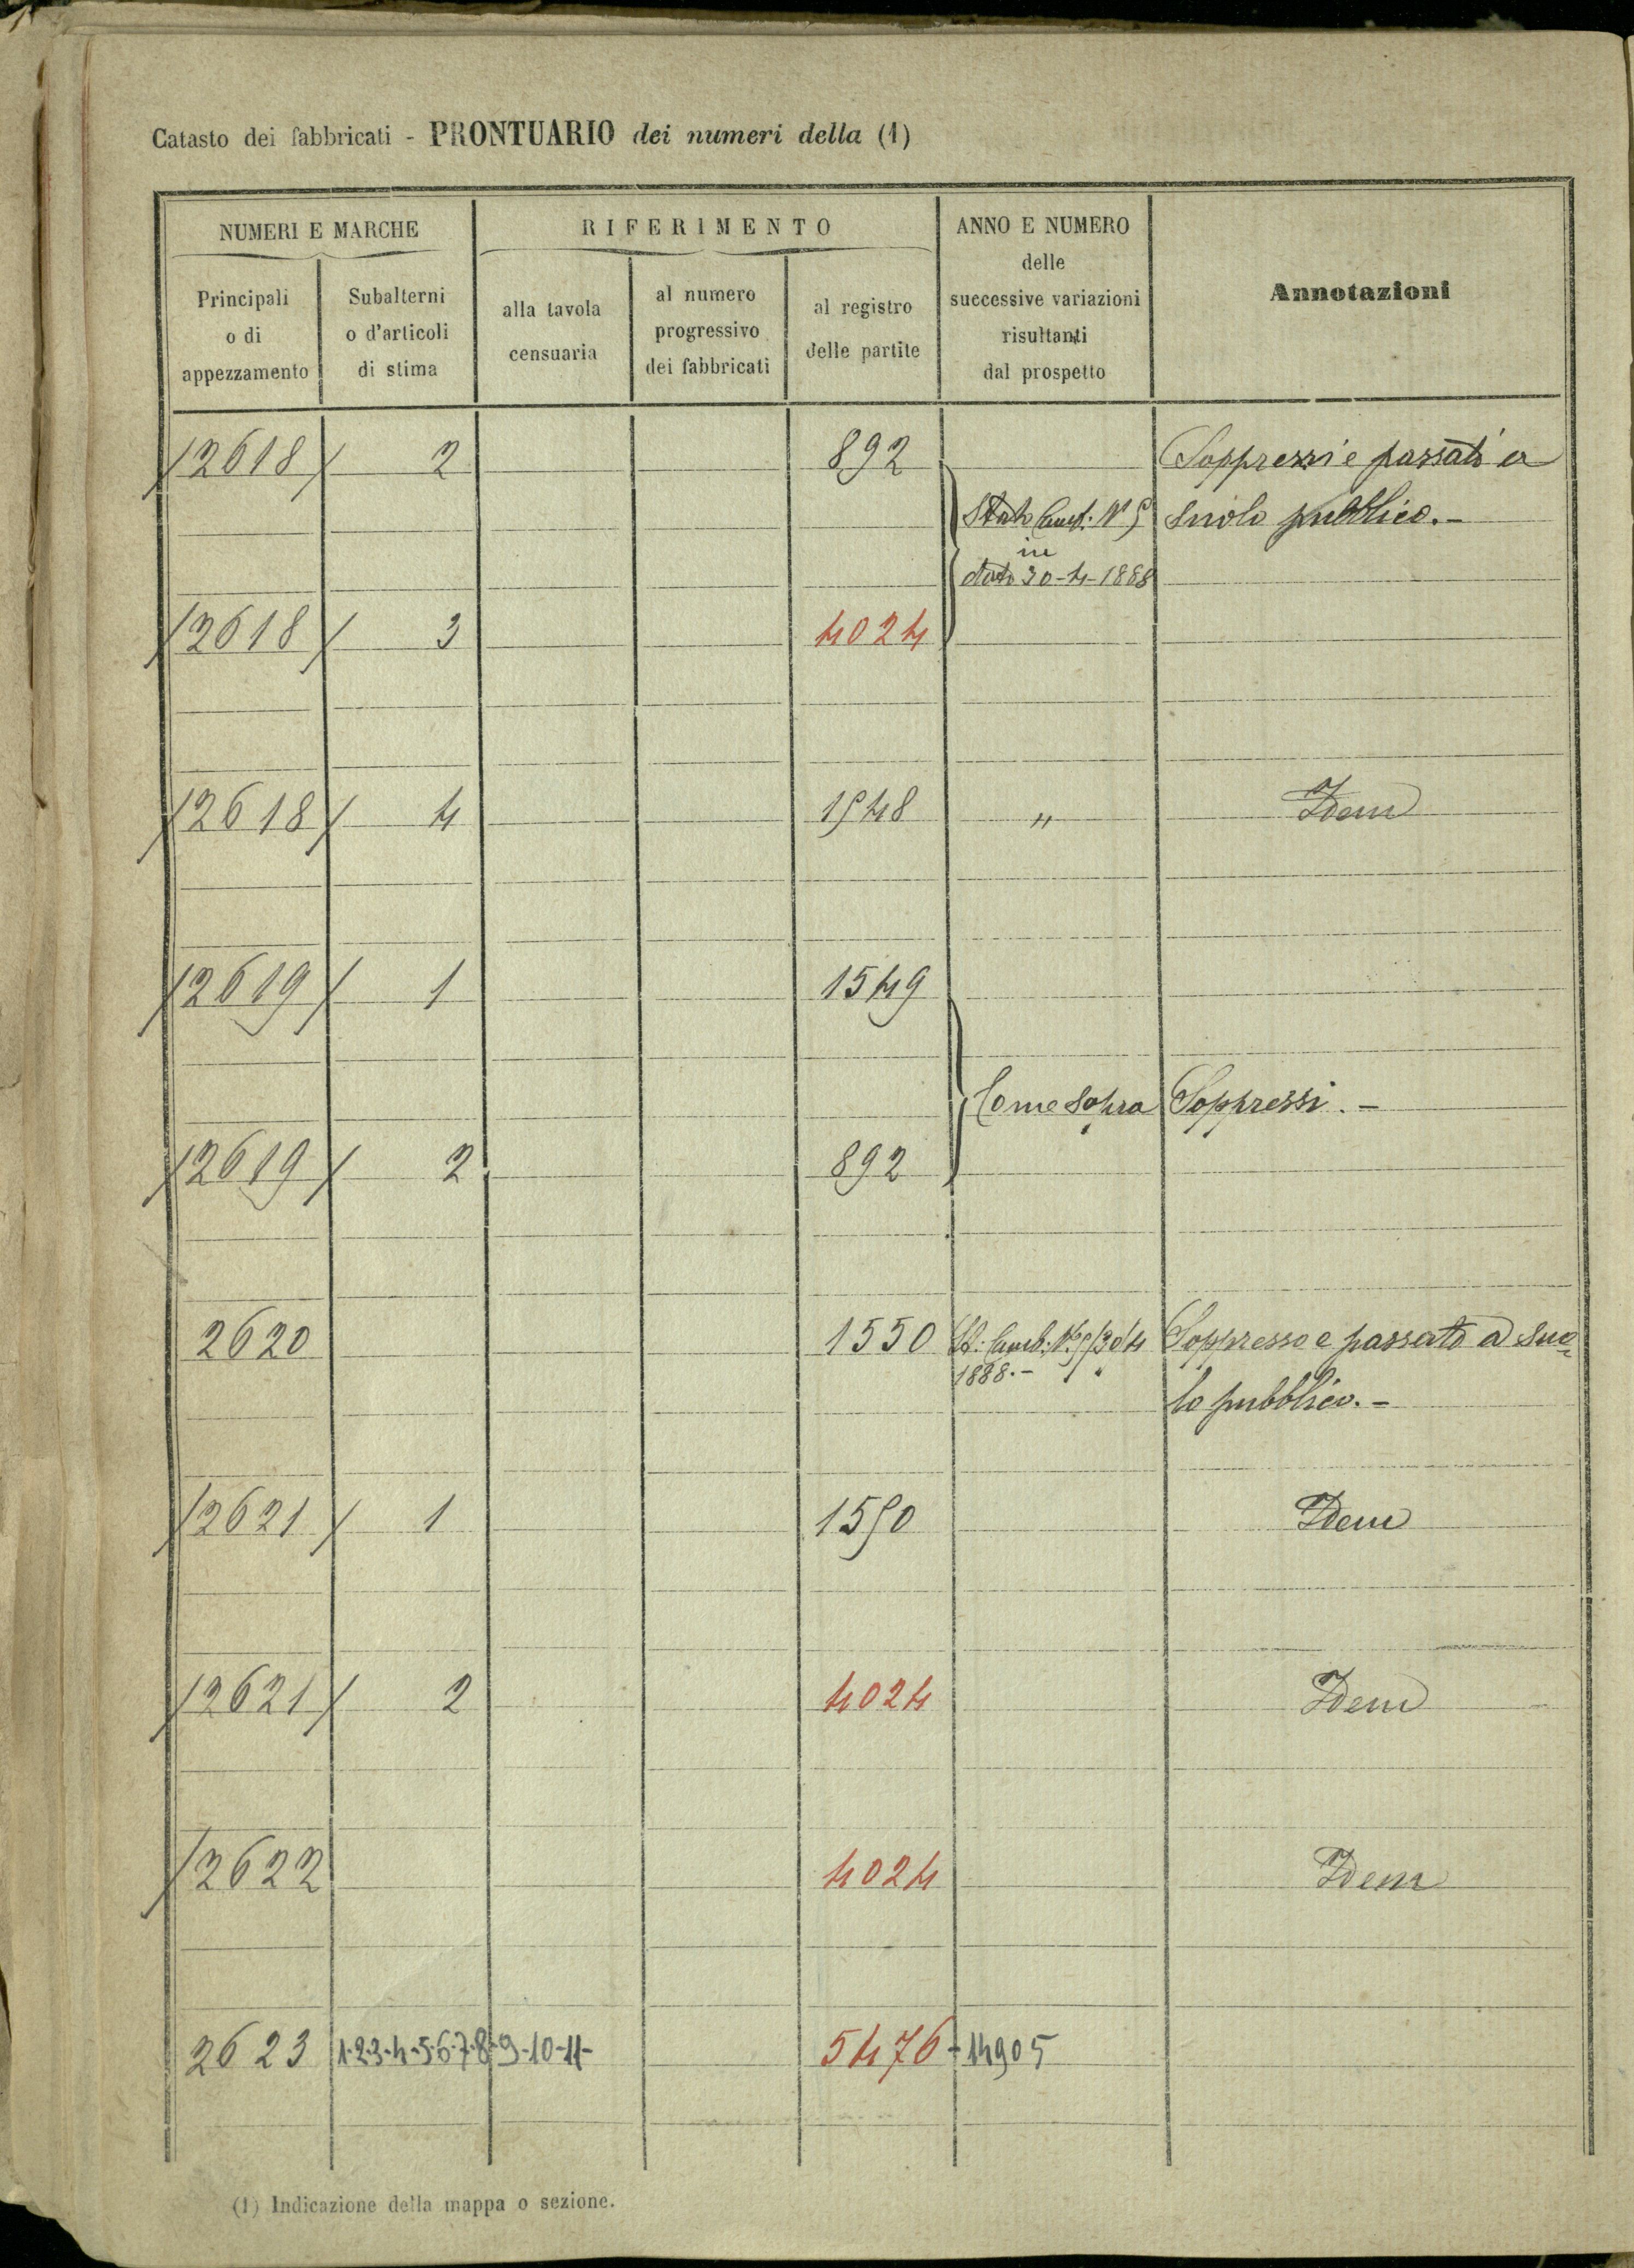 Catasto dei fabbricati - PRONTUARIO dei numeri della (1)
NUMERI E MARCHE
RIFERIMENTO
ANNO E NUMERO
delle
successive variazioni
risultanti
dal prospetto
Annotazioni
Principali
o di
appezzamento
Subalterni
o d'articoli
di stima
alla tavola
censuaria
al numero
progressivo
dei fabbricati
al registro
delle partite
2618 2 892 Soppressi e passati a
Stato Camb: N° 5 suolo pubblico.-
in
data 30-4-1888
2618 3 4024
2618 4 1548 " Idem
2619 1 1549
Come sopra Soppressi.-
2619 2 892
2620 1550 St: Camb: N° 5/30/4 Soppresso e passato a suo=
1888.-
lo pubblico.-
2621 1 1550 Idem
2621 2 4024 Idem
2622 4024 Idem
2623 1-2-3-4-5-6-7-8-9-10-11- 5476 - 14905
(1) Indicazione della mappa o sezione.